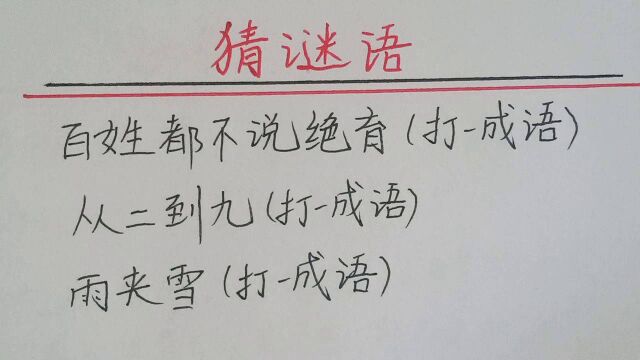 猜谜语
百姓都不说绝育(打一成语)
从二到九(打一成语)
雨夹雪(打一成语)